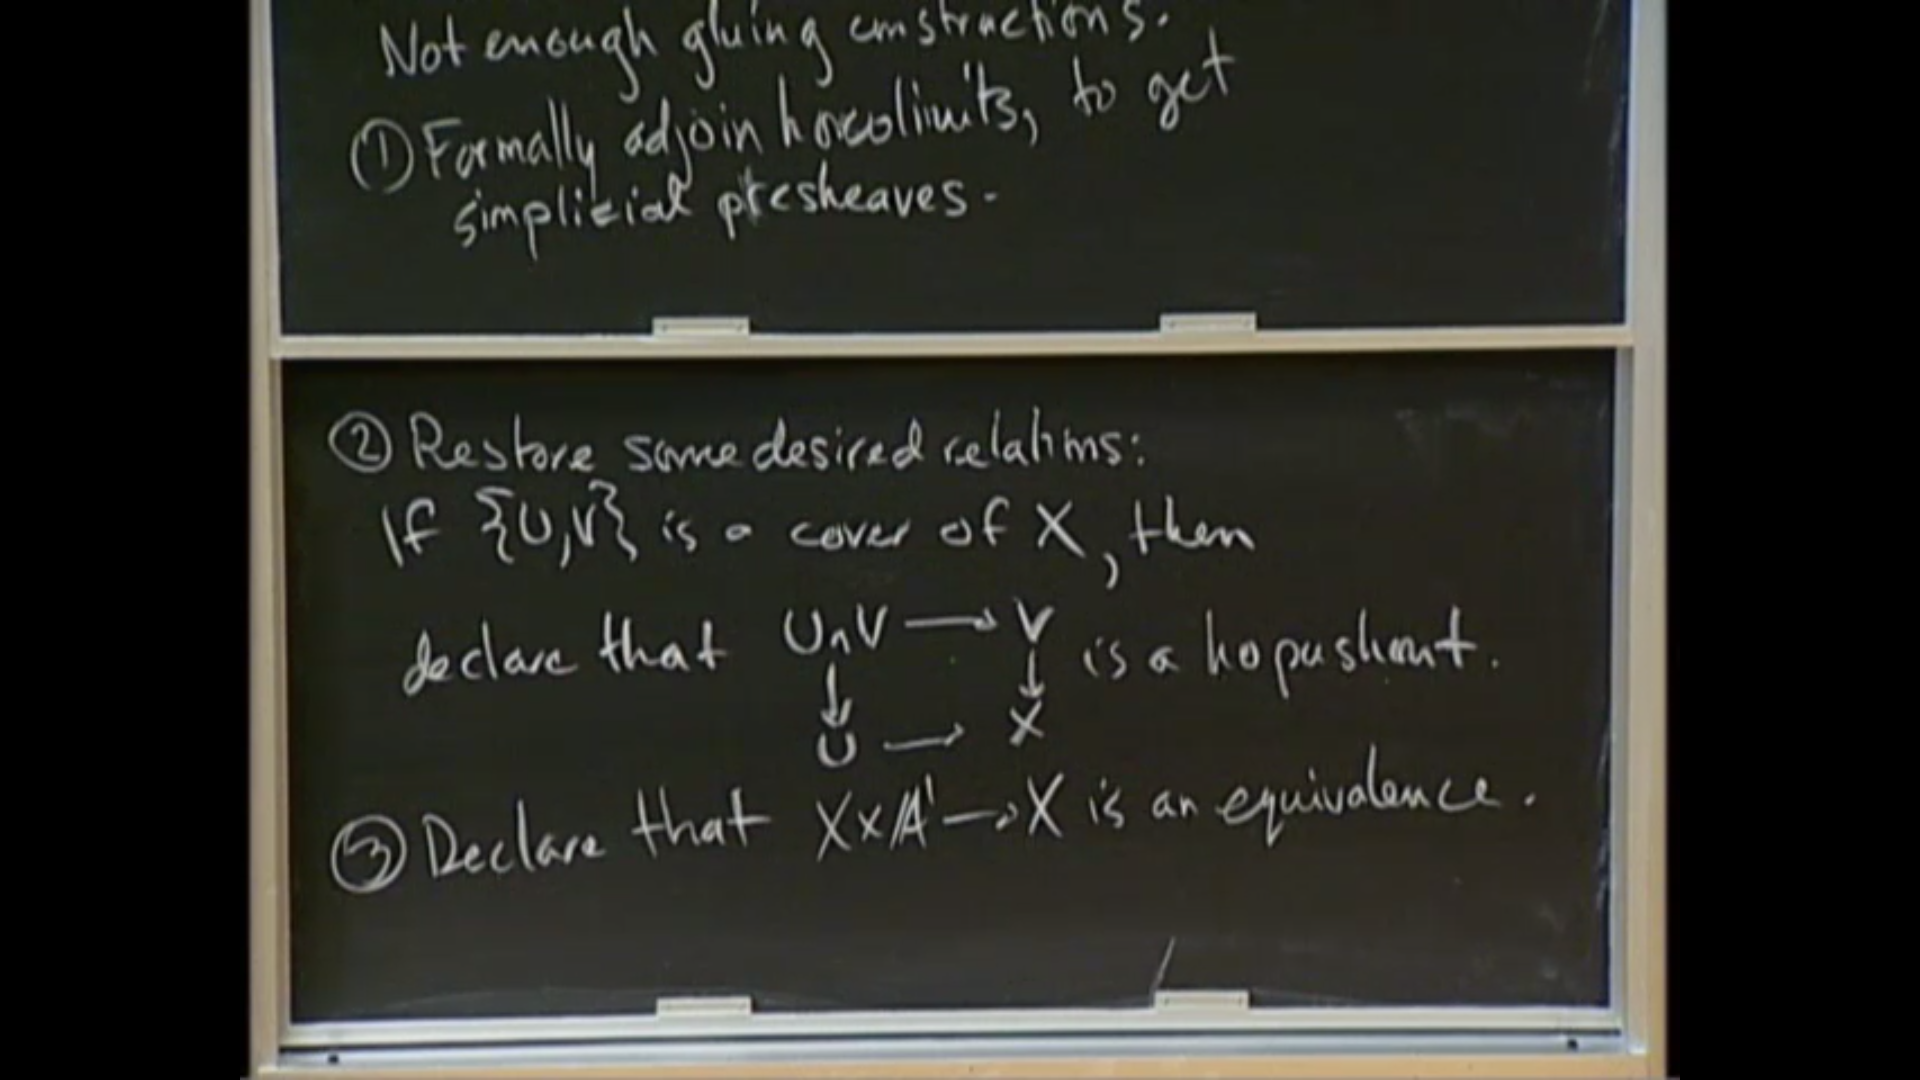 Not enough gluing constructions.
① Formally adjoin hocolimits, to get
simplicial presheaves.
② Restore some desired relations:
If {U,V} is a cover of X, then
declare that U∩V → V is a hopushout.
↓ ↓
U → X
③ Declare that X×𝔸¹→X is an equivalence.